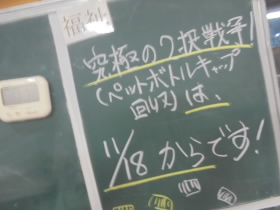 福祉
究極の2択戦争!
(ペットボトルキャップ
回収)は、
11/18からです!